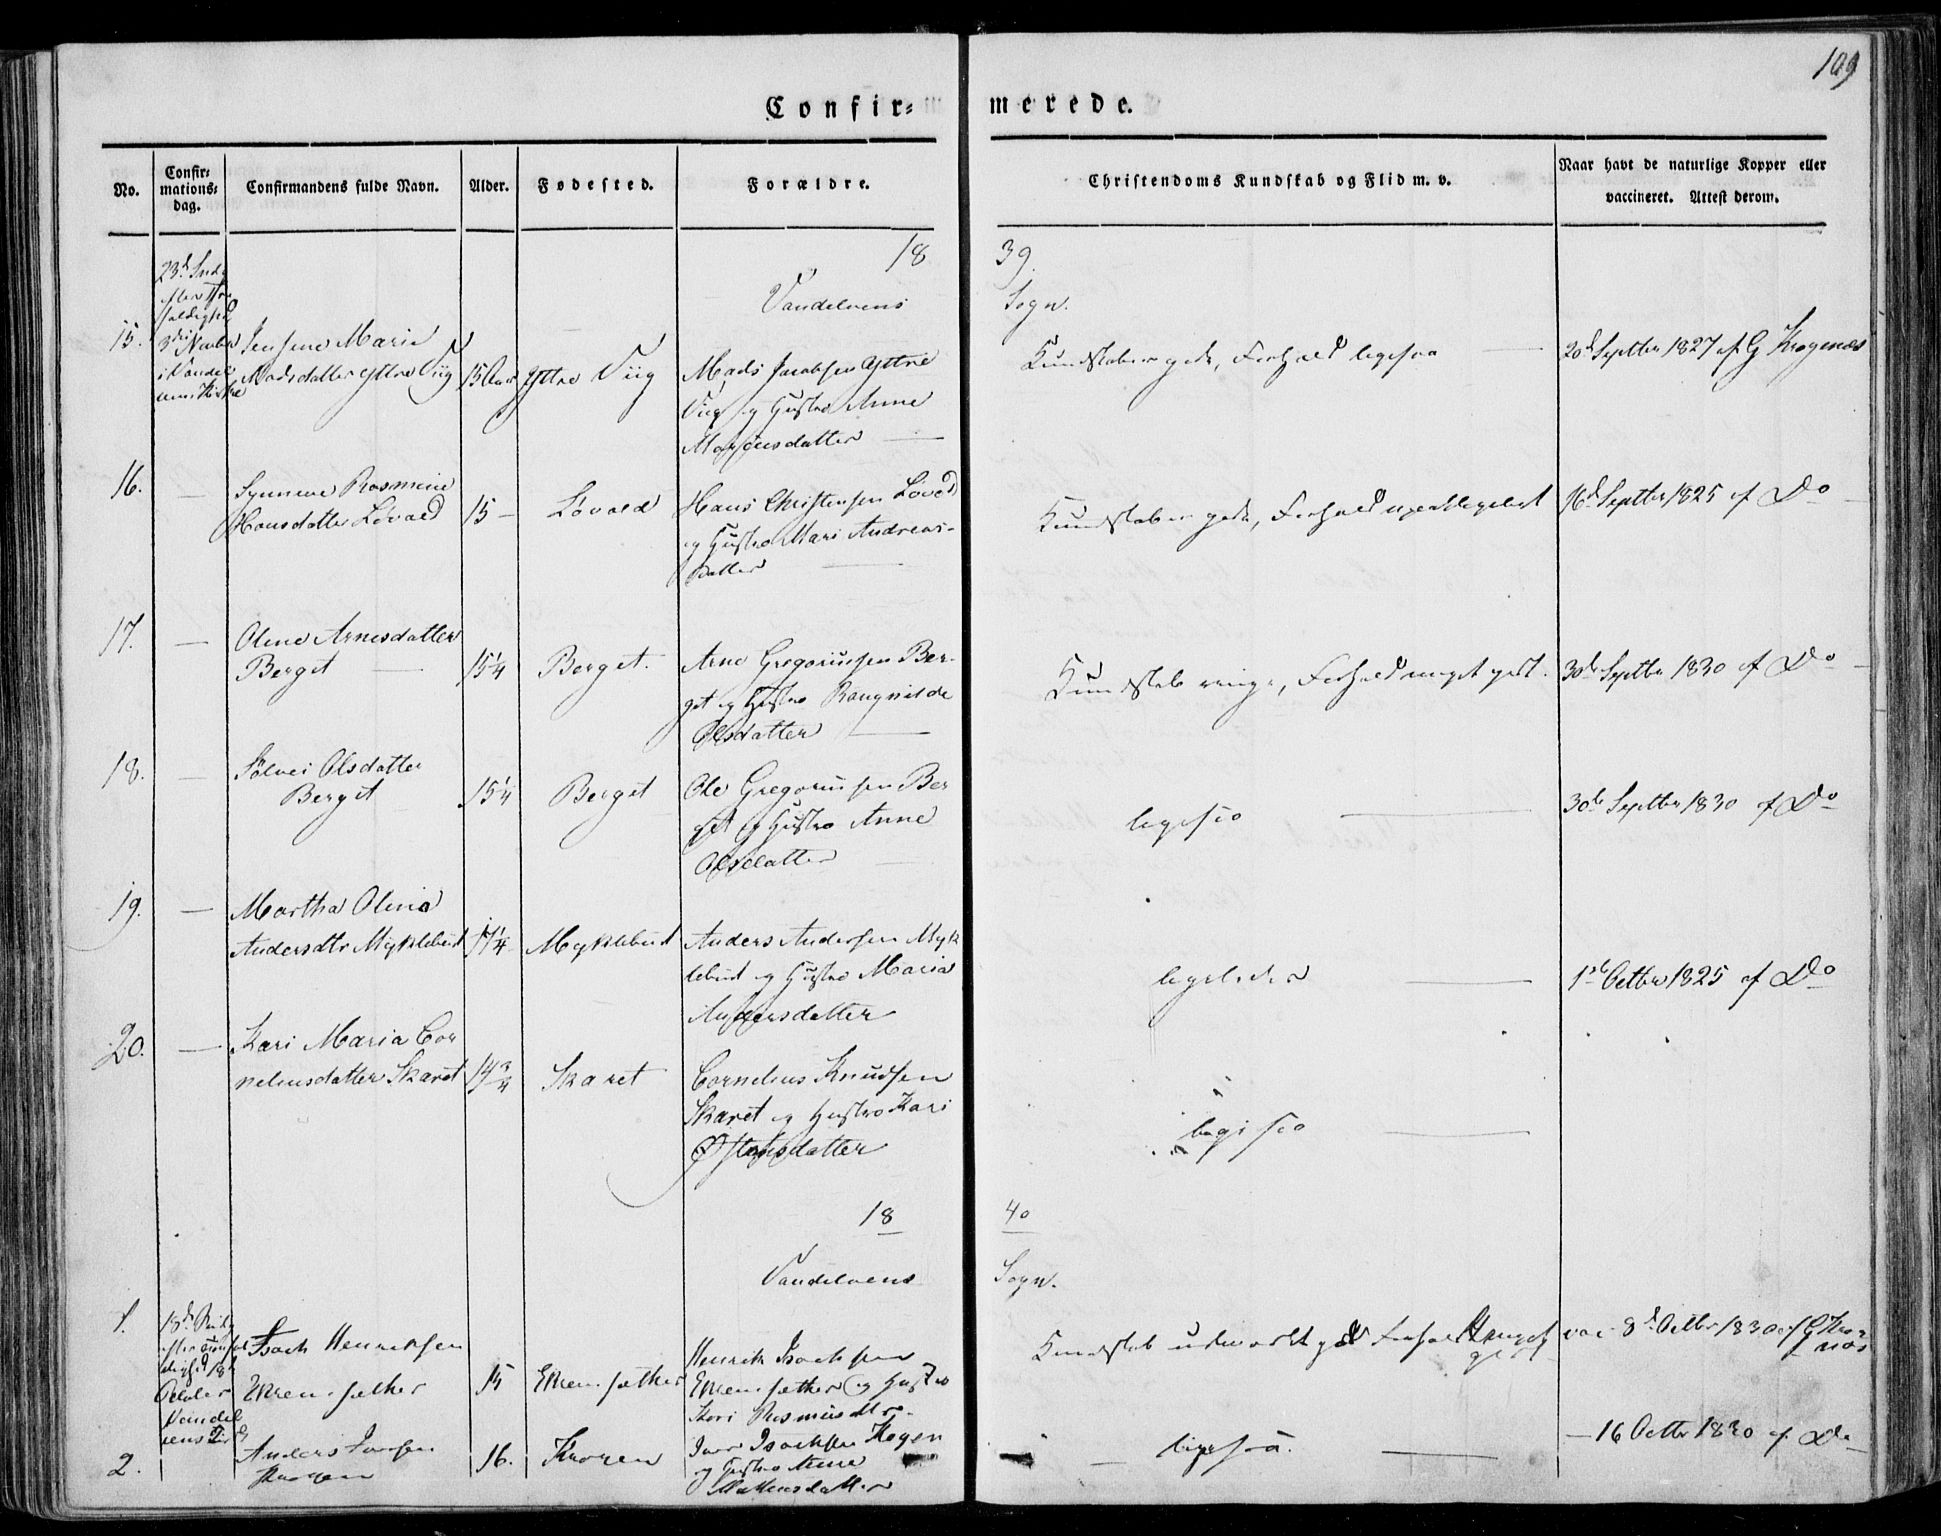 109
Confir= merede.
No.
Confir=
mations=
dag.
Confirmandens fulde Navn.
Alder.
Fødested.
Forældre.
Christendoms Kundskab og Flid m. v.
Naar havt de naturlige Kopper eller
vaccineret. Attest derom.
18 39.
Vandelvens Sogn.
15.
23d Sønd.
3die Novbr
i Vandel
vens Kirke
Jensine Marie
Madsdatter Yttre Viig
15 Aar
Yttre Viig
Mads Jacobsen Yttre
Viig og Hustro Anne
Mogensdatter
Kundskaber gode, Forhold ligesaa
20d Septbr 1827 af G Krogenæs
16.
—
Synneve Rasmine
Hansdatter Løvold
15 —
Løvold
Hans Christensen Løvold
og Hustro Mari Andreas-
datter
Kundskaber gode, Forhold upaaklageligt
16d Septbr 1825 af Do
17.
—
Oline Arnesdatter
Berget
15 1/4
Berget.
Arne Gregoriussen Ber-
get og Hustro Rangnilde
Olsdatter
Kundskab ringe, Forhold meget godt.
30de Septbr 1830 af Do
18.
—
Sølvei Olsdatter
Berget
15 1/4
Berget
Ole Gregoriussen Ber
get og Hustro Anne
Olsdatter
ligesaa
30de Septbr 1830 af Do
19.
—
Martha Olivia
Andersdtr Myklebust
17 1/4
Myklebust
Anders Andersen Myk
lebust og Hustro Maria
Andersdatter
ligeledes
1ste Octbr 1825 af Do
20.
—
Kari Maria Cor
neliusdatter Skaret
14 3/4
Skaret
Cornelius Knudsen
Skaret og Hustro Kari
Østensdatter
ligesaa
18 40
Vandelvens Sogn.
1.
18de Sønd.
Isach Henriksen
Ekremsæther
15
Ekremsæther
Henrik Isachsen
Ekremsæther og Hustro
Kari Rasmusdtr.
Kundskab udmærket godt Forhold meget
godt
vac. 8d Octbr 1830 af G Kro-
næs
2.
Anders Iversen
Krogen
16.
Krogen
Iver Isachsen Kogen
og Hustro Anne
ligesaa.
— 16 Octbr 1830 af Do